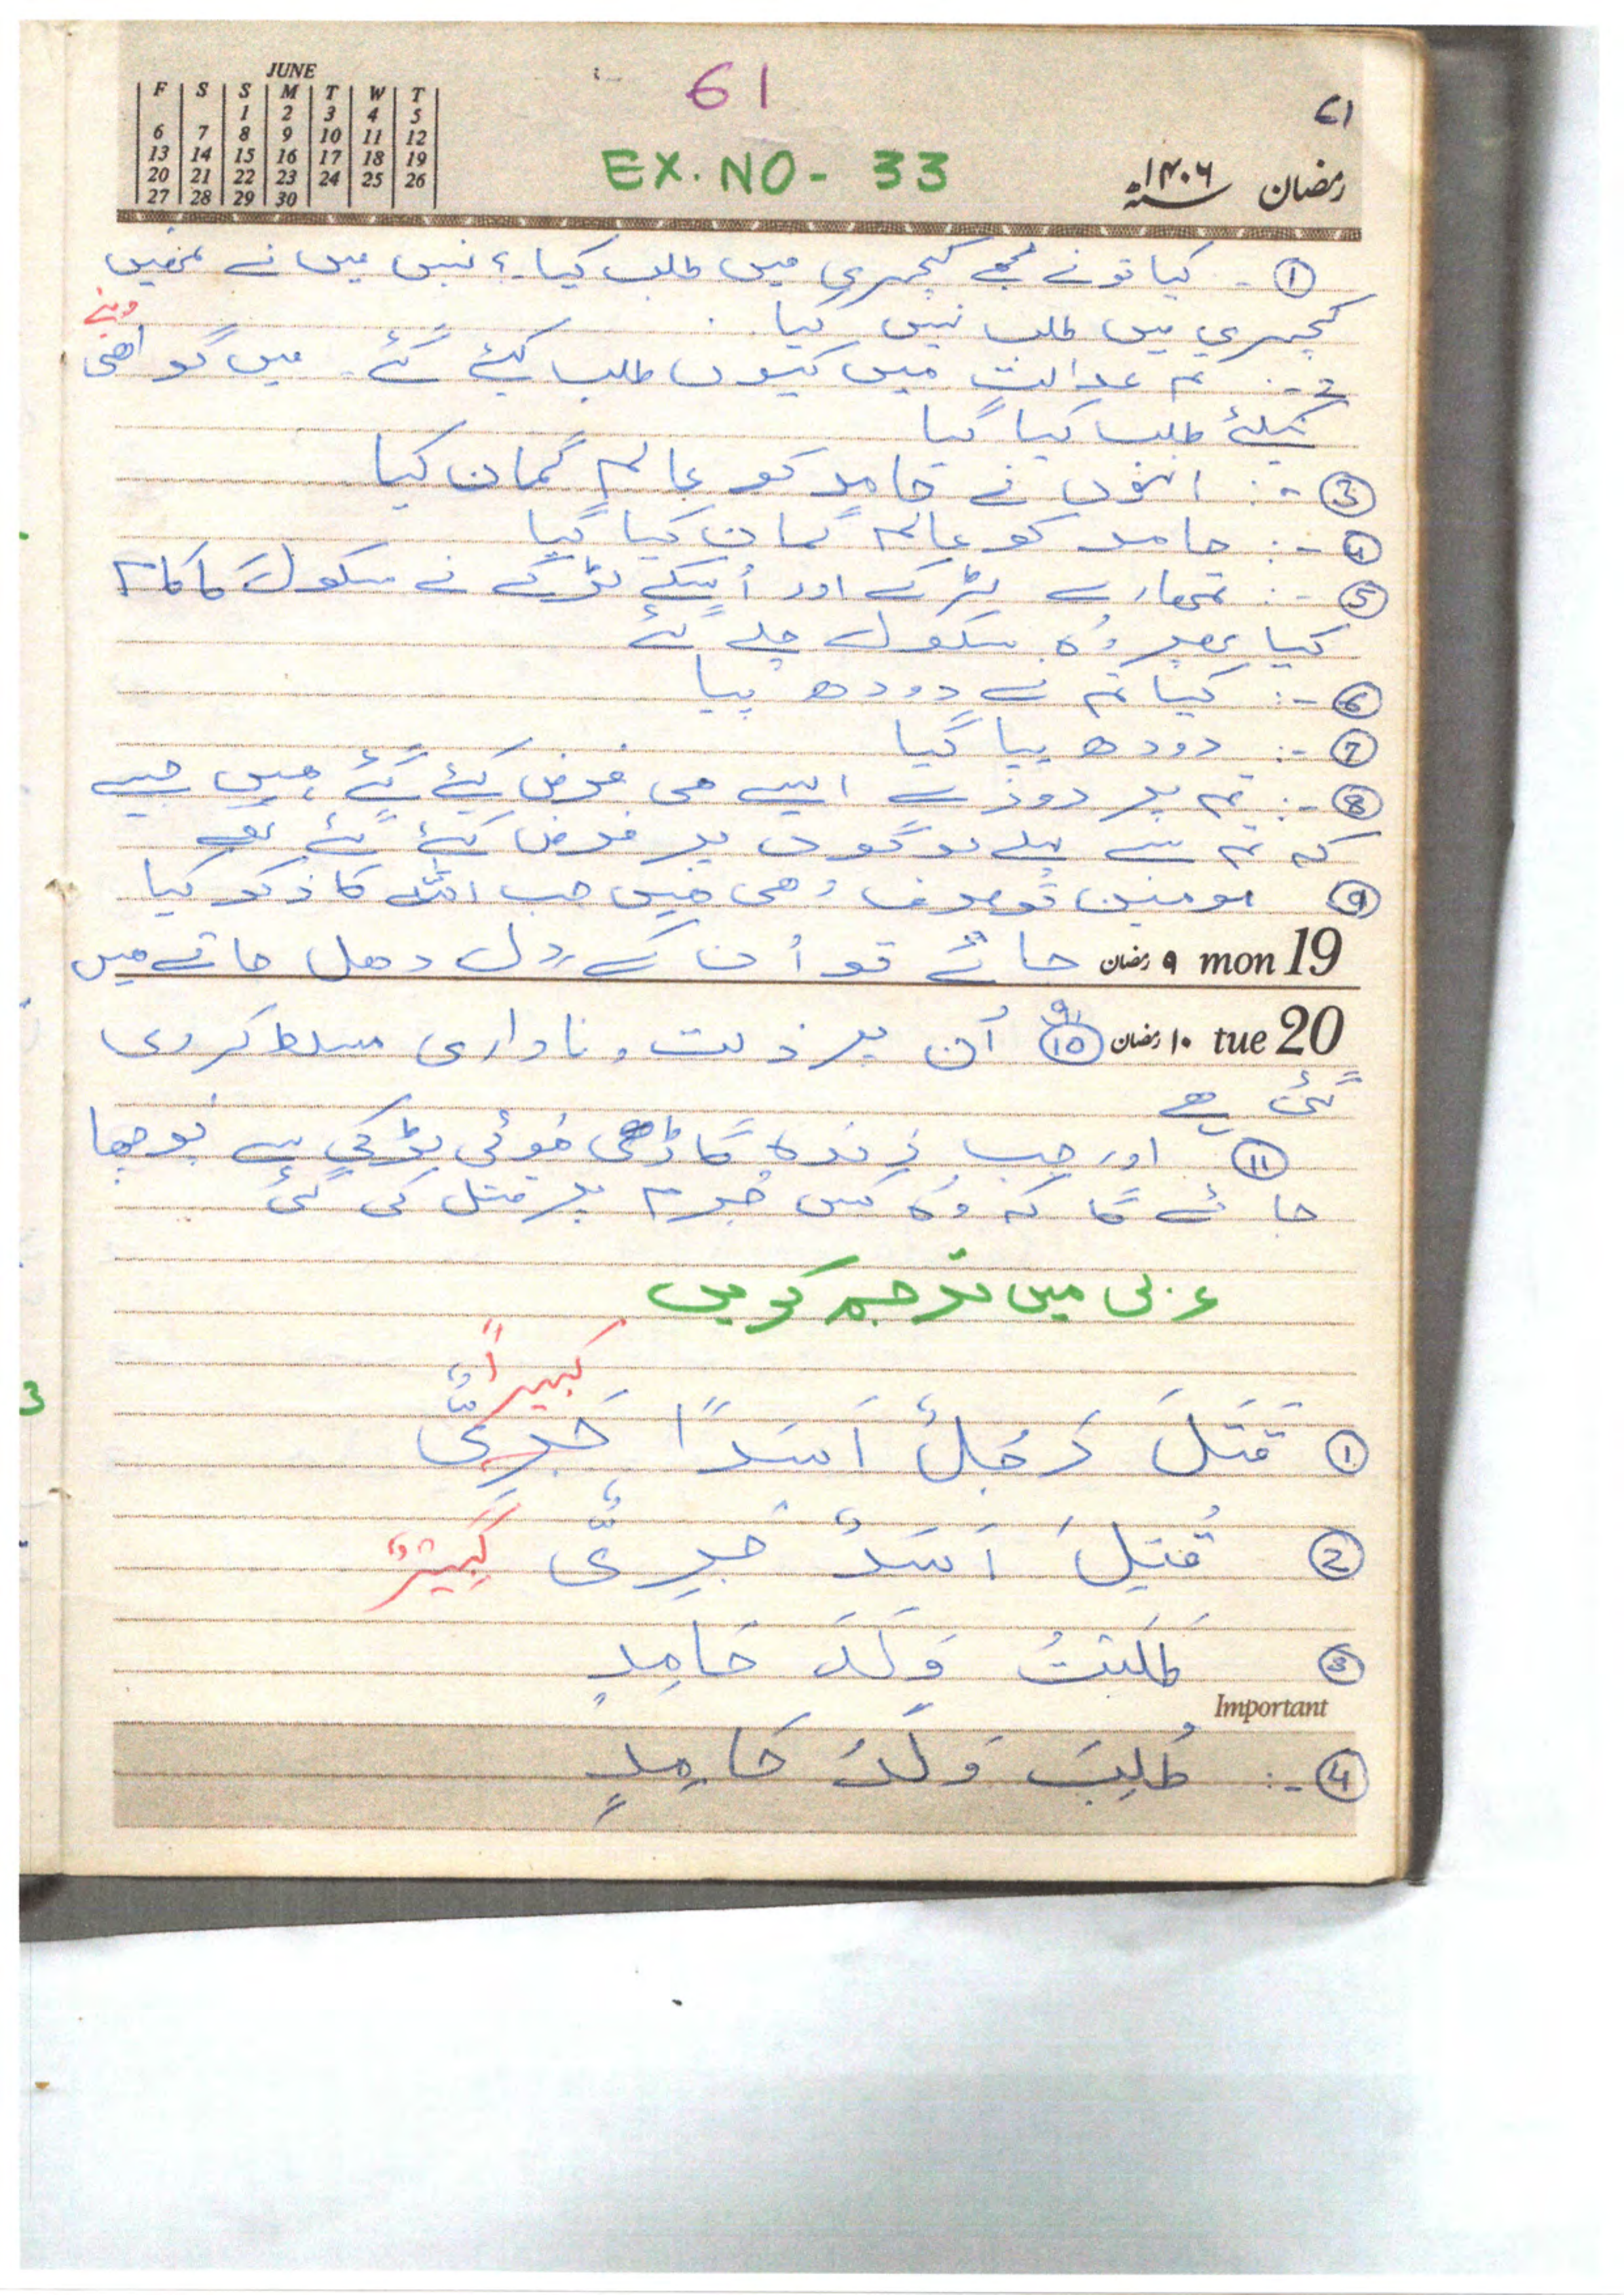 JUNE
F S S M T W T
1 2 3 4 5
6 7 8 9 10 11 12
13 14 15 16 17 18 19
20 21 22 23 24 25 26
27 28 29 30
61
61
EX. NO - 33
رمضان ۱۴۰۶ھ
① - کیا تو نے مجھے کچہری میں طلب کیا ؟ نہیں میں نے تمھیں
کچہری میں طلب نہیں کیا
2 -: تم عدالت میں کیوں طلب کیئے گئے - میں گواھی دینے
کیلئے طلب کیا گیا
③ -: انھوں نے حامد کو عالم گمان کیا
④ -: حامد کو عالم گمان کیا گیا
⑤ -: تمھارے لڑکے اور اُسکے لڑکے نے سکول کا کام
کیا پھر وُہ سکول چلے گئے
⑥ -: کیا تم نے دودھ پیا
⑦ -: دودھ پیا گیا
⑧ -: تم پر روزے ایسے ھی فرض کیئے گئے ھیں جیسے
کہ تم سے پہلے لوگوں پر فرض کیئے گئے تھے
⑨ مومنین توصرف وھی ھیں جب اللہ کا ذکر کیا
جائے تو اُن کے دل دھل جاتے ھیں ۹ رمضان mon 19
⑩ اُن پر ذلت و ناداری مسلط کر دی ۱۰ رمضان tue 20
گئی ھے
⑪ اور جب زندہ گاڑھی ھوئی لڑکی سے پوچھا
جائے گا کہ وُہ کس جُرم پر قتل کی گئی
عربی میں ترجمہ کریں
كبيراً
① قَتَلَ رَجُلٌ اَسَدًا جَرِىٌّ
② قُتِلَ اَسَدٌ جَرِىٌّ كَبِيرٌ
③ طَلَبْتُ وَلَدَ حَامِدٍ
Important
④ -: طُلِبَ وَلَدُ حَامِدٍ